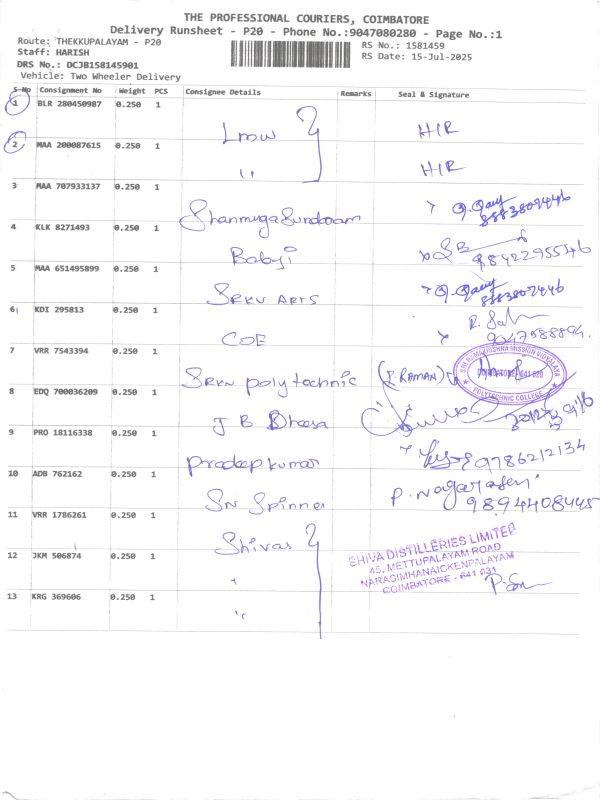 THE PROFESSIONAL COURIERS, COIMBATORE
Delivery Runsheet - P20 - Phone No.:9047080280 - Page No.:1
Route: THEKKUPALAYAM - P20
RS No.: 1581459
Staff: HARISH
RS Date: 15-Jul-2025
DRS No.: DCJB158145901
Vehicle: Two Wheeler Delivery
S No Consignment No Weight PCS Consignee Details Remarks Seal & Signature
1 BLR 280450987 0.250 1 Lmw HIR
2 MAA 200087615 0.250 1 " HIR
3 MAA 707933137 0.250 1 Shanmuga Sundaram 8883807446
4 KLK 8271493 0.250 1 Babyi 9842295546
5 MAA 651495899 0.250 1 SRKV ARTS 8883807446
6 KDI 295813 0.250 1 COE
7 VRR 7543394 0.250 1 SRKV polytechnic (I. RAMAN)
SRI RAMAKRISHNA MISSION VIDYALAYA
COIMBATORE - 641 020
POLYTECHNIC COLLEGE
8 EDQ 700036209 0.250 1 J B
9 PRO 18116338 0.250 1 Pradeep kumar 9786212134
10 ADB 762162 0.250 1 SN Spinner P. Nagarajan
9894408445
11 VRR 1786261 0.250 1 Shivas
SHIVA DISTILLERIES LIMITED
45, METTUPALAYAM ROAD
NARASIMHANAICKENPALAYAM
COIMBATORE - 641 031
12 JKM 506874 0.250 1 "
13 KRG 369606 0.250 1 "